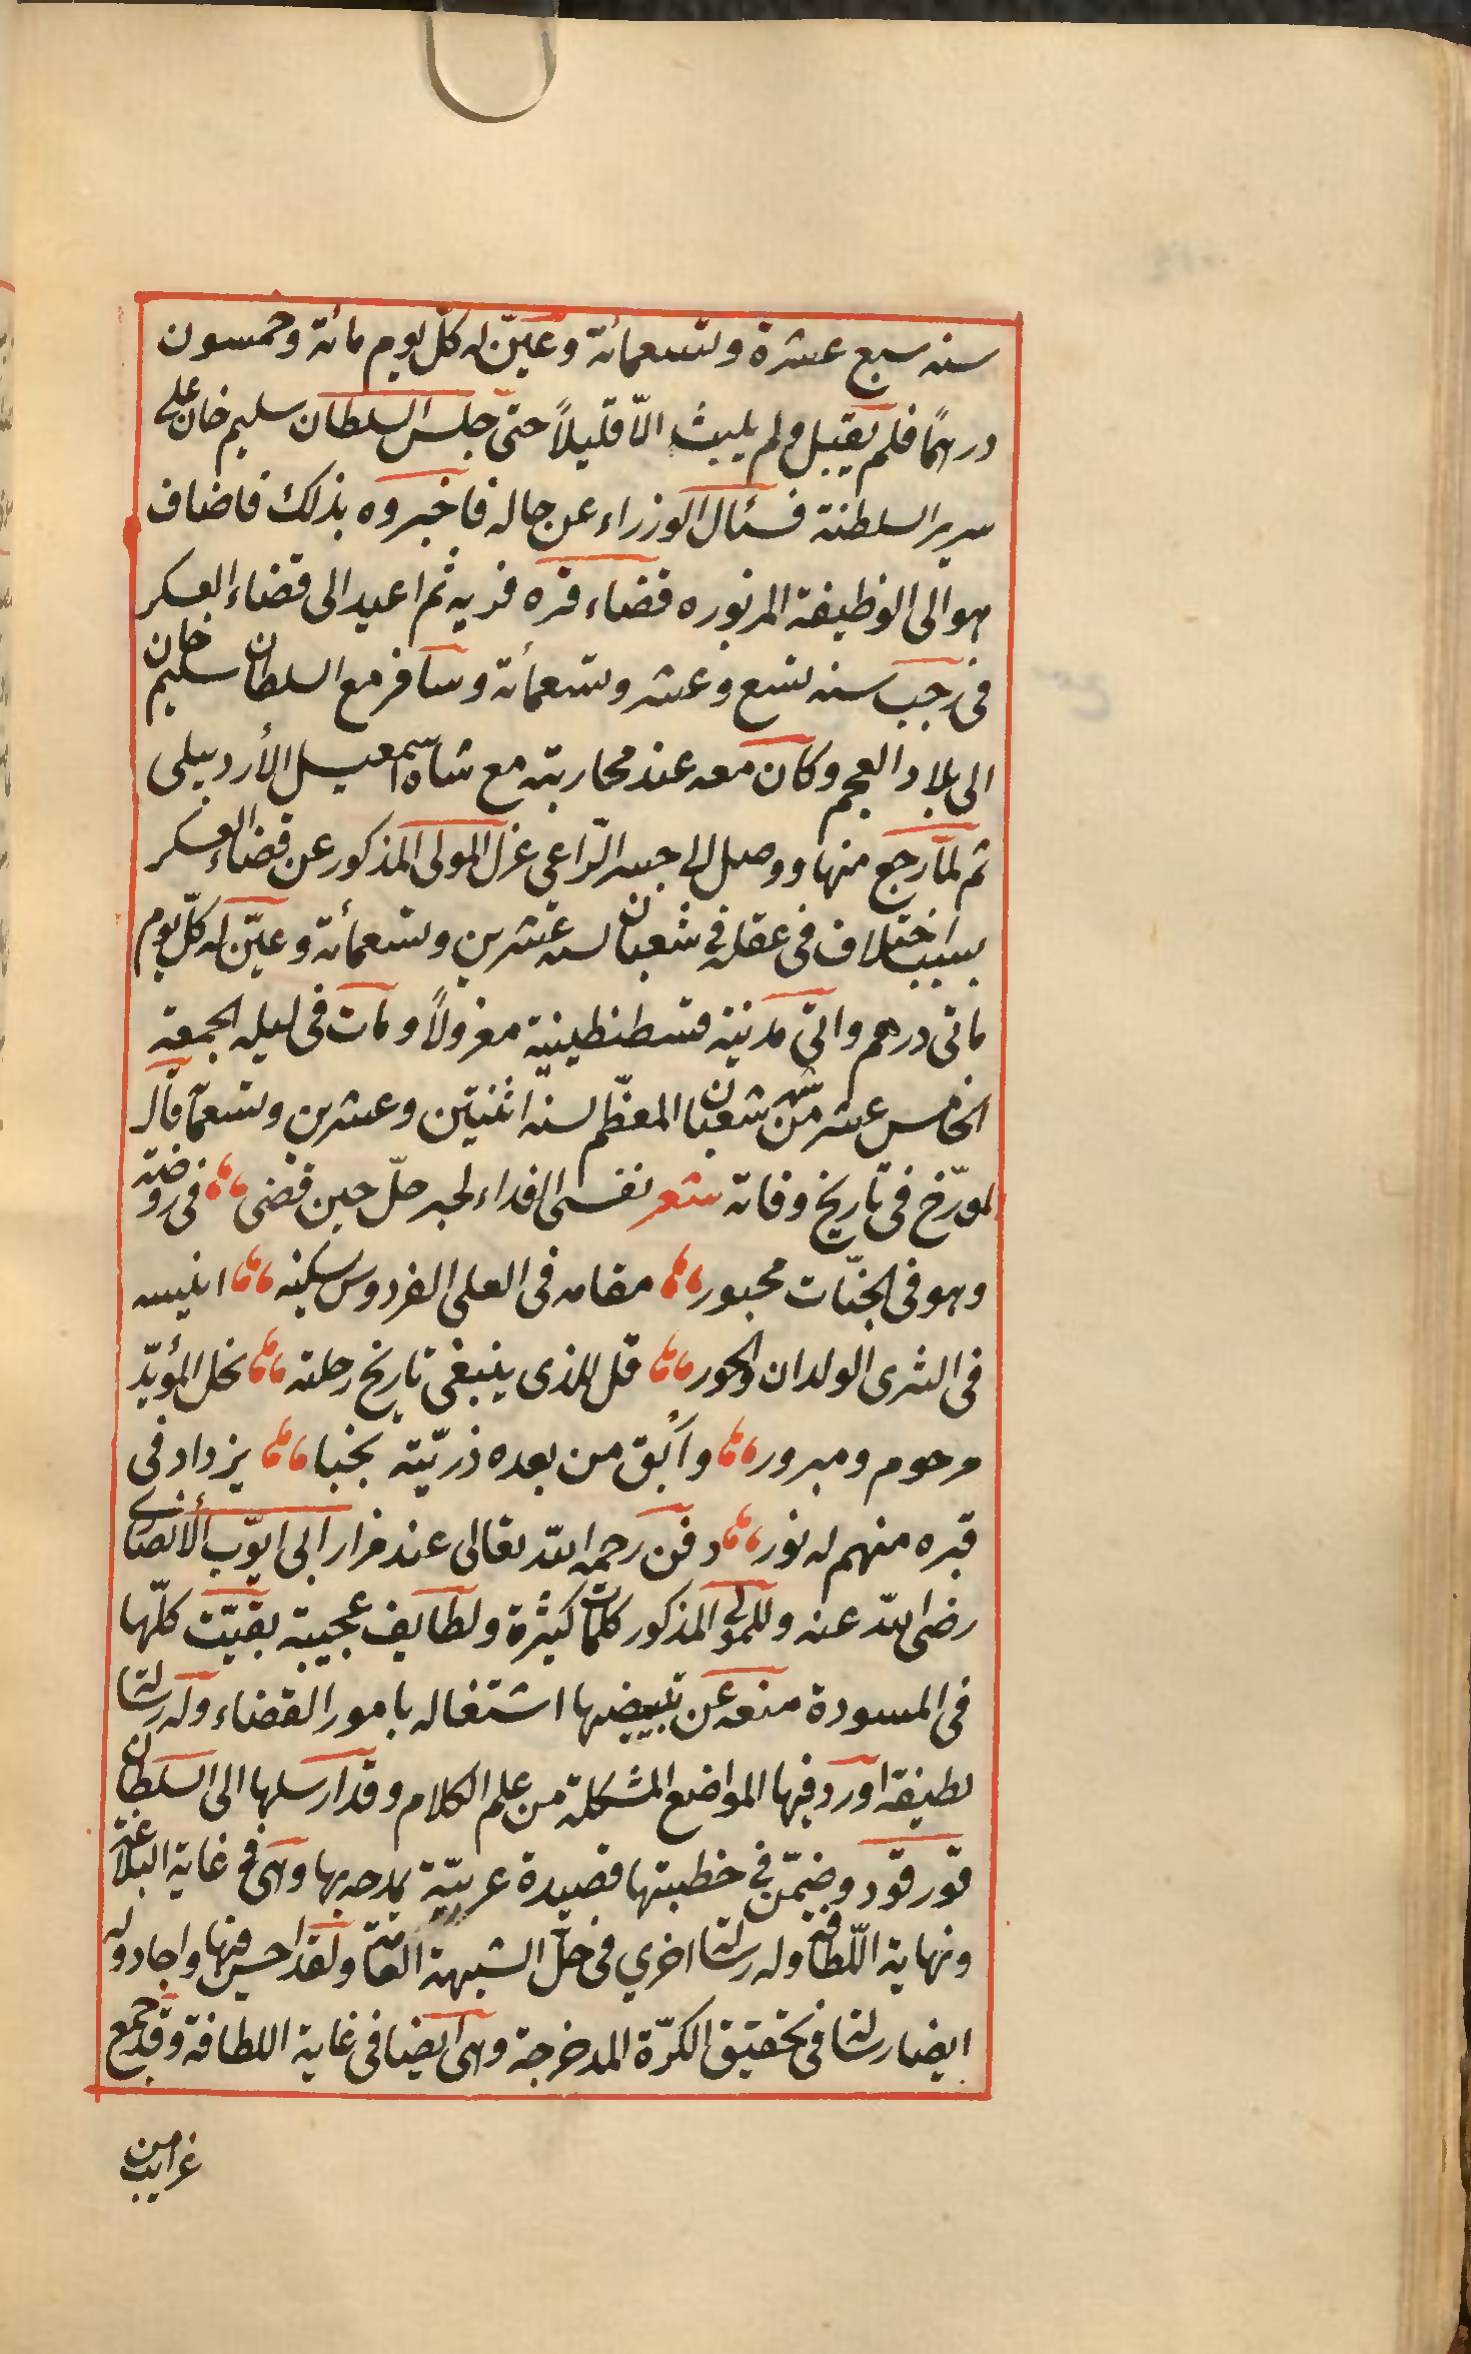 سنه سبع عشرة وتسعمائة وعيّن له كلّ يوم مائة وخمسون
درهمًا فلم يقبل ولم يلبث الّا قليلاً حتى جلس السلطان سليم خان على
سرير السلطنة فسئال الوزراء عن حاله فاخبروه بذلك فاضاف
هو الى الوظيفة المزبوره قضاء قره فريه ثم اعيد الى قضاء العسكر
فى رجب سنه تسع وعشر وتسعمأئة وسافر مع السلطان سليم خان
الى بلاد العجم وكان معه عند محاربته مع شاه اسمعيل الأردبيلى
ثم لمّا رجع منها ووصل الى جسر الرّاعى عزل المولى المذكور عن قضاء العسكر
بسبب اختلاف فى عقله فى شعبان لسنه عشرين وتسعمأئة وعيّن له كلّ يوم
مأتى درهم واتى مدينة قسطنطينية معزولاً ومات فى ليله الجمعة
الخامس عشر من شهر شعبان المعظّم لسنه اثنتين وعشرين وتسعمآ قال
المورّخ فى تاريخ وفاته شعر نفسى الفداء لحبر حلّ حين قضى فى روضة
وهو فى الجنّات محبور مقامه فى العلى الفردوس سكنه انيسه
فى الثرى الولدان والحور قل للذى ينبغى تاريخ رحلته نجل المؤيّد
مرحوم ومبرور وأبق من بعده ذريّته نجبا يزداد فى
قبره منهم له نور دفن رحمه الله تعالى عند مزار ابى ايّوب الأنصارى
رضى الله عنه وللمولى المذكور كلمات كثيرة ولطايف عجيبة بقيّت كلّها
فى المسودة منعه عن تبييضها اشتغاله بامور القضاء وله رسالة
لطيفة اورد فيها المواضع المشكلة من علم الكلام وقد ارسلها الى السلطان
قورقود وضمّن فى خطبتها قصيدة عربيّة يمدحه بها وهى فى غاية البلاغة
ونهاية اللّطافة وله رسالة اخرى فى حلّ الشبهة العامّة ولقد احسن فيها واجاد وله
ايضا رسالة فى تحقيق الكرّة المدحرجة وهى ايضا فى غاية اللطافة وقد جمع
من غرايب